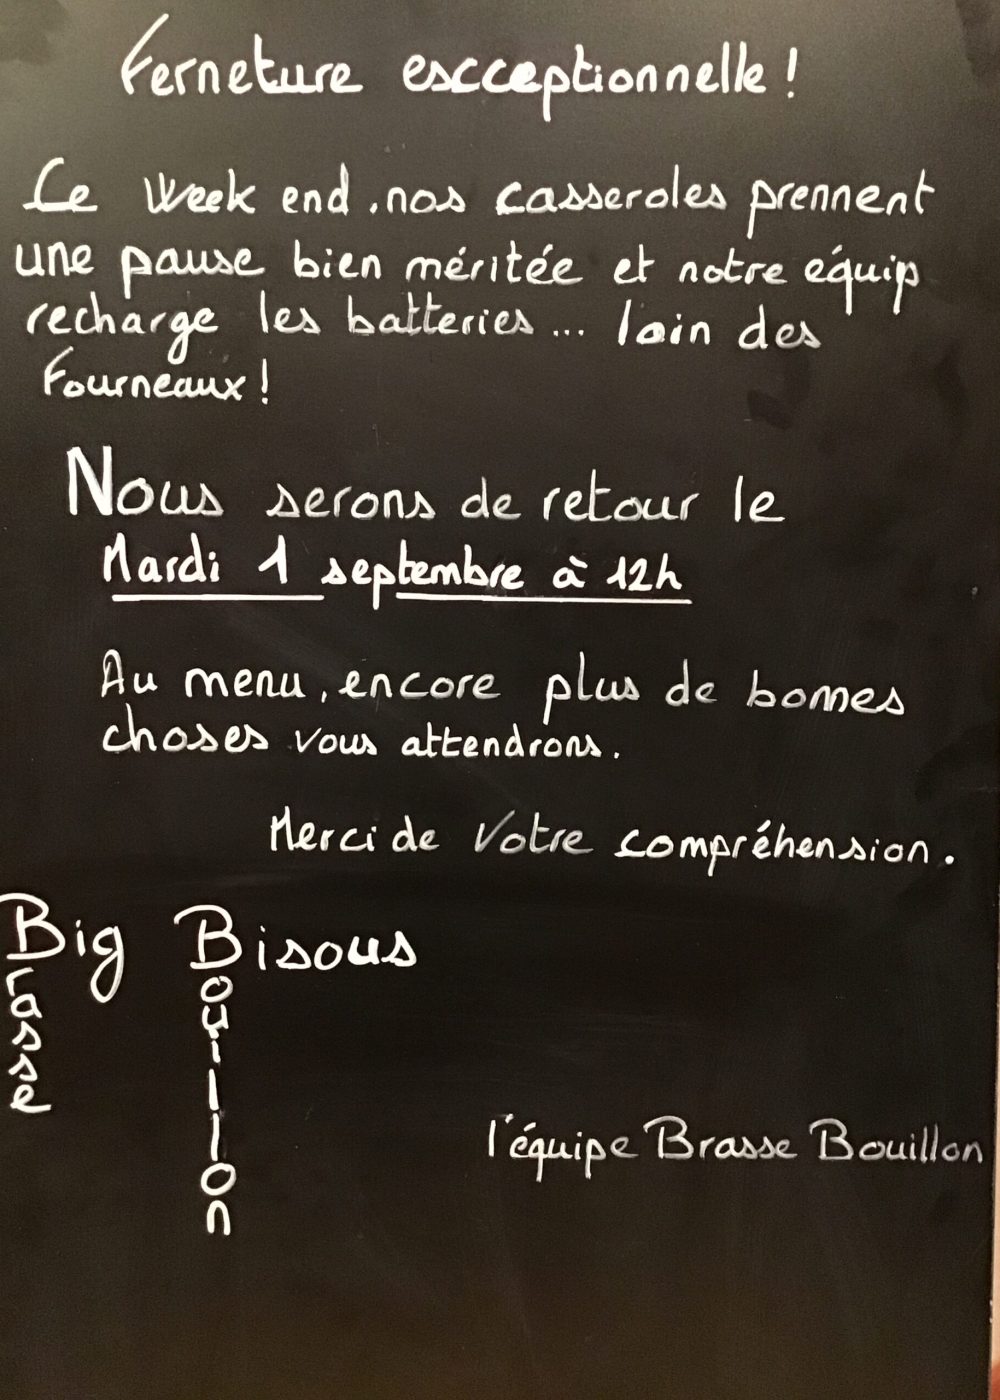 Ferneture escceptionnelle !
Ce Week end, nos casseroles prennent
une pause bien méritée et notre équip
recharge les batteries... loin des
Fourneaux !
Nous serons de retour le
Mardi 1 septembre à 12h
Au menu, encore plus de bonnes
choses vous attendrons.
Merci de Votre compréhension.
Big Bisous
Brasse
Bouillon
l'équipe Brasse Bouillon